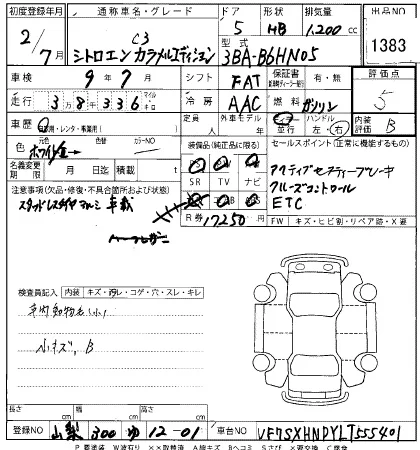 初度登録年月 通称車名・グレード ドア 形状 排気量 出品NO
2/7月 C3 シトロエン カラメルエディション 5 HB 1,200 cc 1383
型式 3BA-B6HN05
車検 9年7月 シフト FAT 保証書 有・無 評価点
走行 3万8千336 マイル キロ 冷房 AAC 燃料 ガソリン 5
車歴 自家用・レンタ・事業用( ) 定員 人 外車モデル 年 並行 ハンドル 左・右 内装評価 B
色 元色 ホワイト 色替 カラーNO 装備品(純正品に限る) セールスポイント(正常に機能するもの)
名義変更期限 月 日迄 積載 t
SR TV ナビ
アクティブセーフティーブレーキ
クルーズコントロール
ETC
注意事項(欠品・修復・不具合箇所および状態)
スタッドレスタイヤ 車載
R券 17250 円
FW キズ・ヒビ割・リペア跡・X要
検査員記入 内装 キズ・汚レ・コゲ・穴・スレ・キレ
車内動物毛(小)
小キズ, B
長さ cm 幅 cm 高さ cm
登録NO 山梨 300 ゆ 12-01 車台NO VF7SXHNPYLT555401
P 要塗装 W波有り XX取替済 A線キズ Bヘコミ Sさび X要交換 C腐食